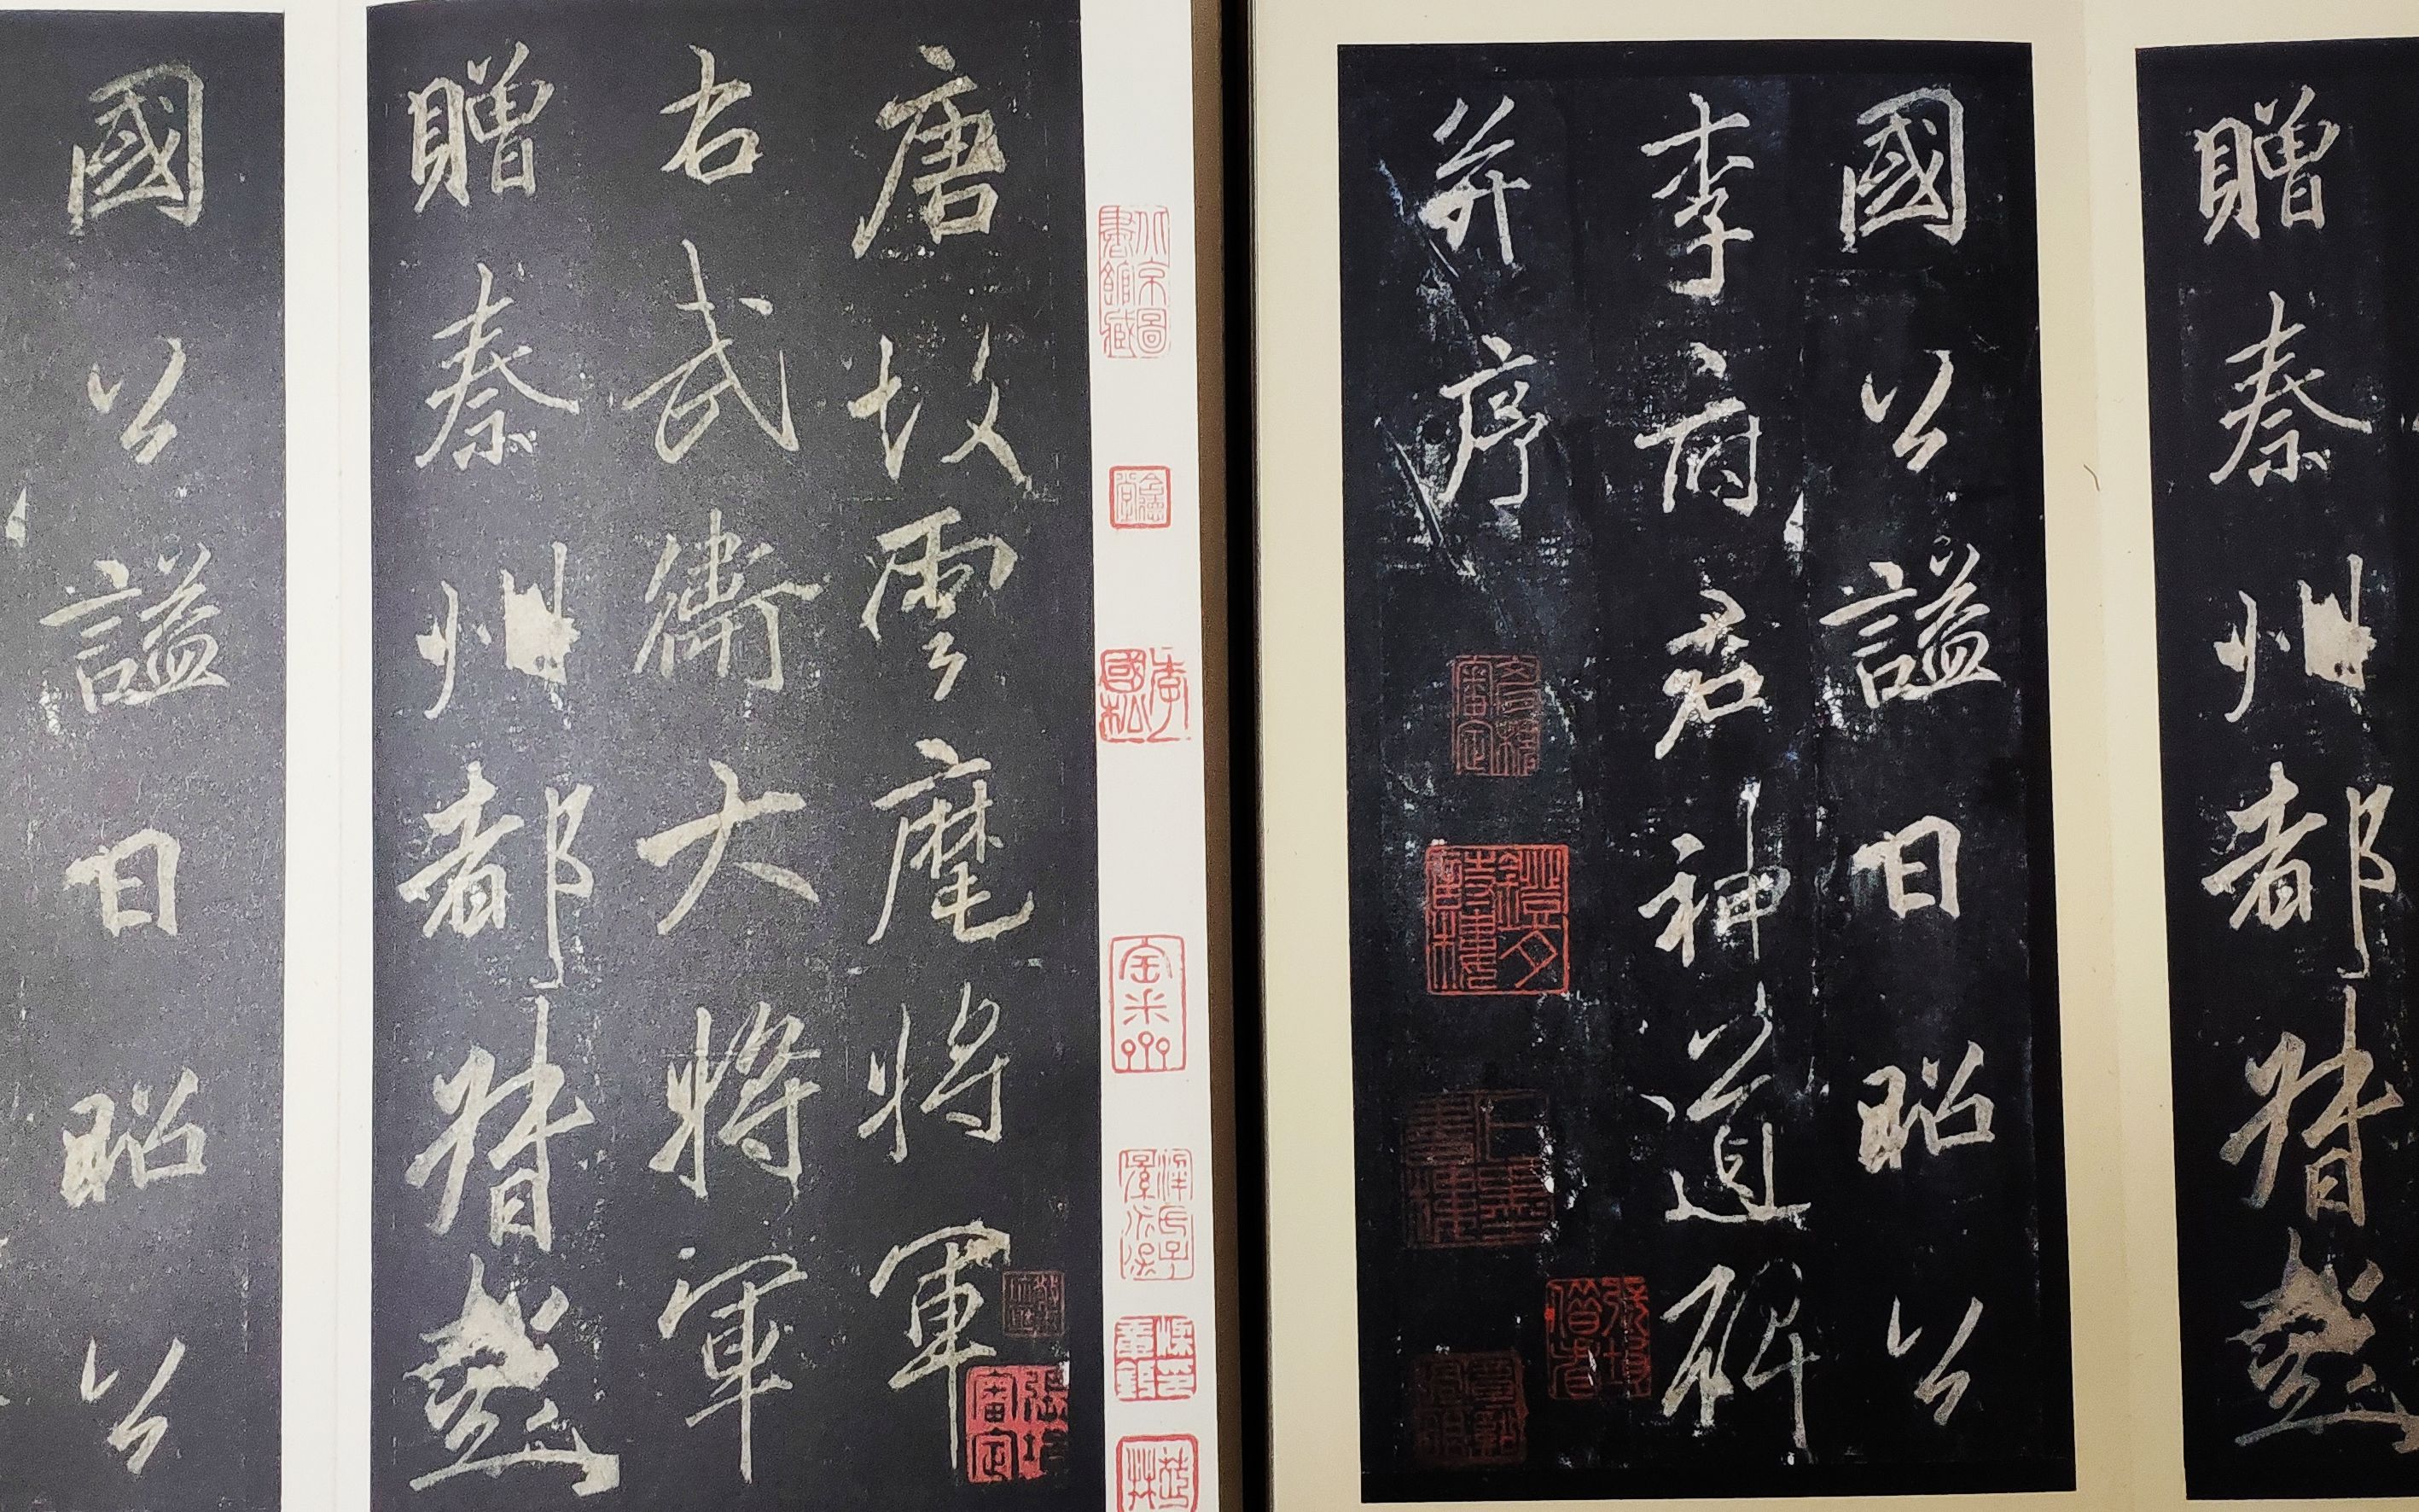 唐故雲麾將軍
右武衛大將軍
贈秦州都督
國公謚曰昭公
北京圖書館藏
李國松
贈秦州都督
國公謚曰昭公
李府君神道碑
并序